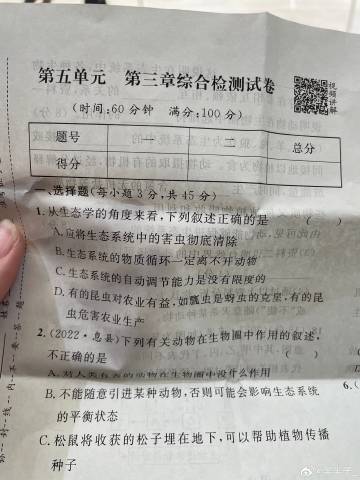 第五单元 第三章综合检测试卷
视频讲解
(时间:60分钟 满分:100分)
题号 一 二 总分
得分
一、选择题(每小题3分,共45分)
1.从生态学的角度来看,下列叙述正确的是 ( )
A.应将生态系统中的害虫彻底清除
B.生态系统的物质循环一定离不开动物
C.生态系统的自动调节能力是没有限度的
D.有的昆虫对农业有益,如瓢虫是蚜虫的克星,有的昆
虫危害农业生产
2.(2022·息县)下列有关动物在生物圈中作用的叙述,
不正确的是 ( )
A.对人类有害的动物在生物圈中没什么作用
B.不能随意引进某种动物,否则可能会影响生态系统
的平衡状态
C.松鼠将收获的松子埋在地下,可以帮助植物传播
种子
6.(